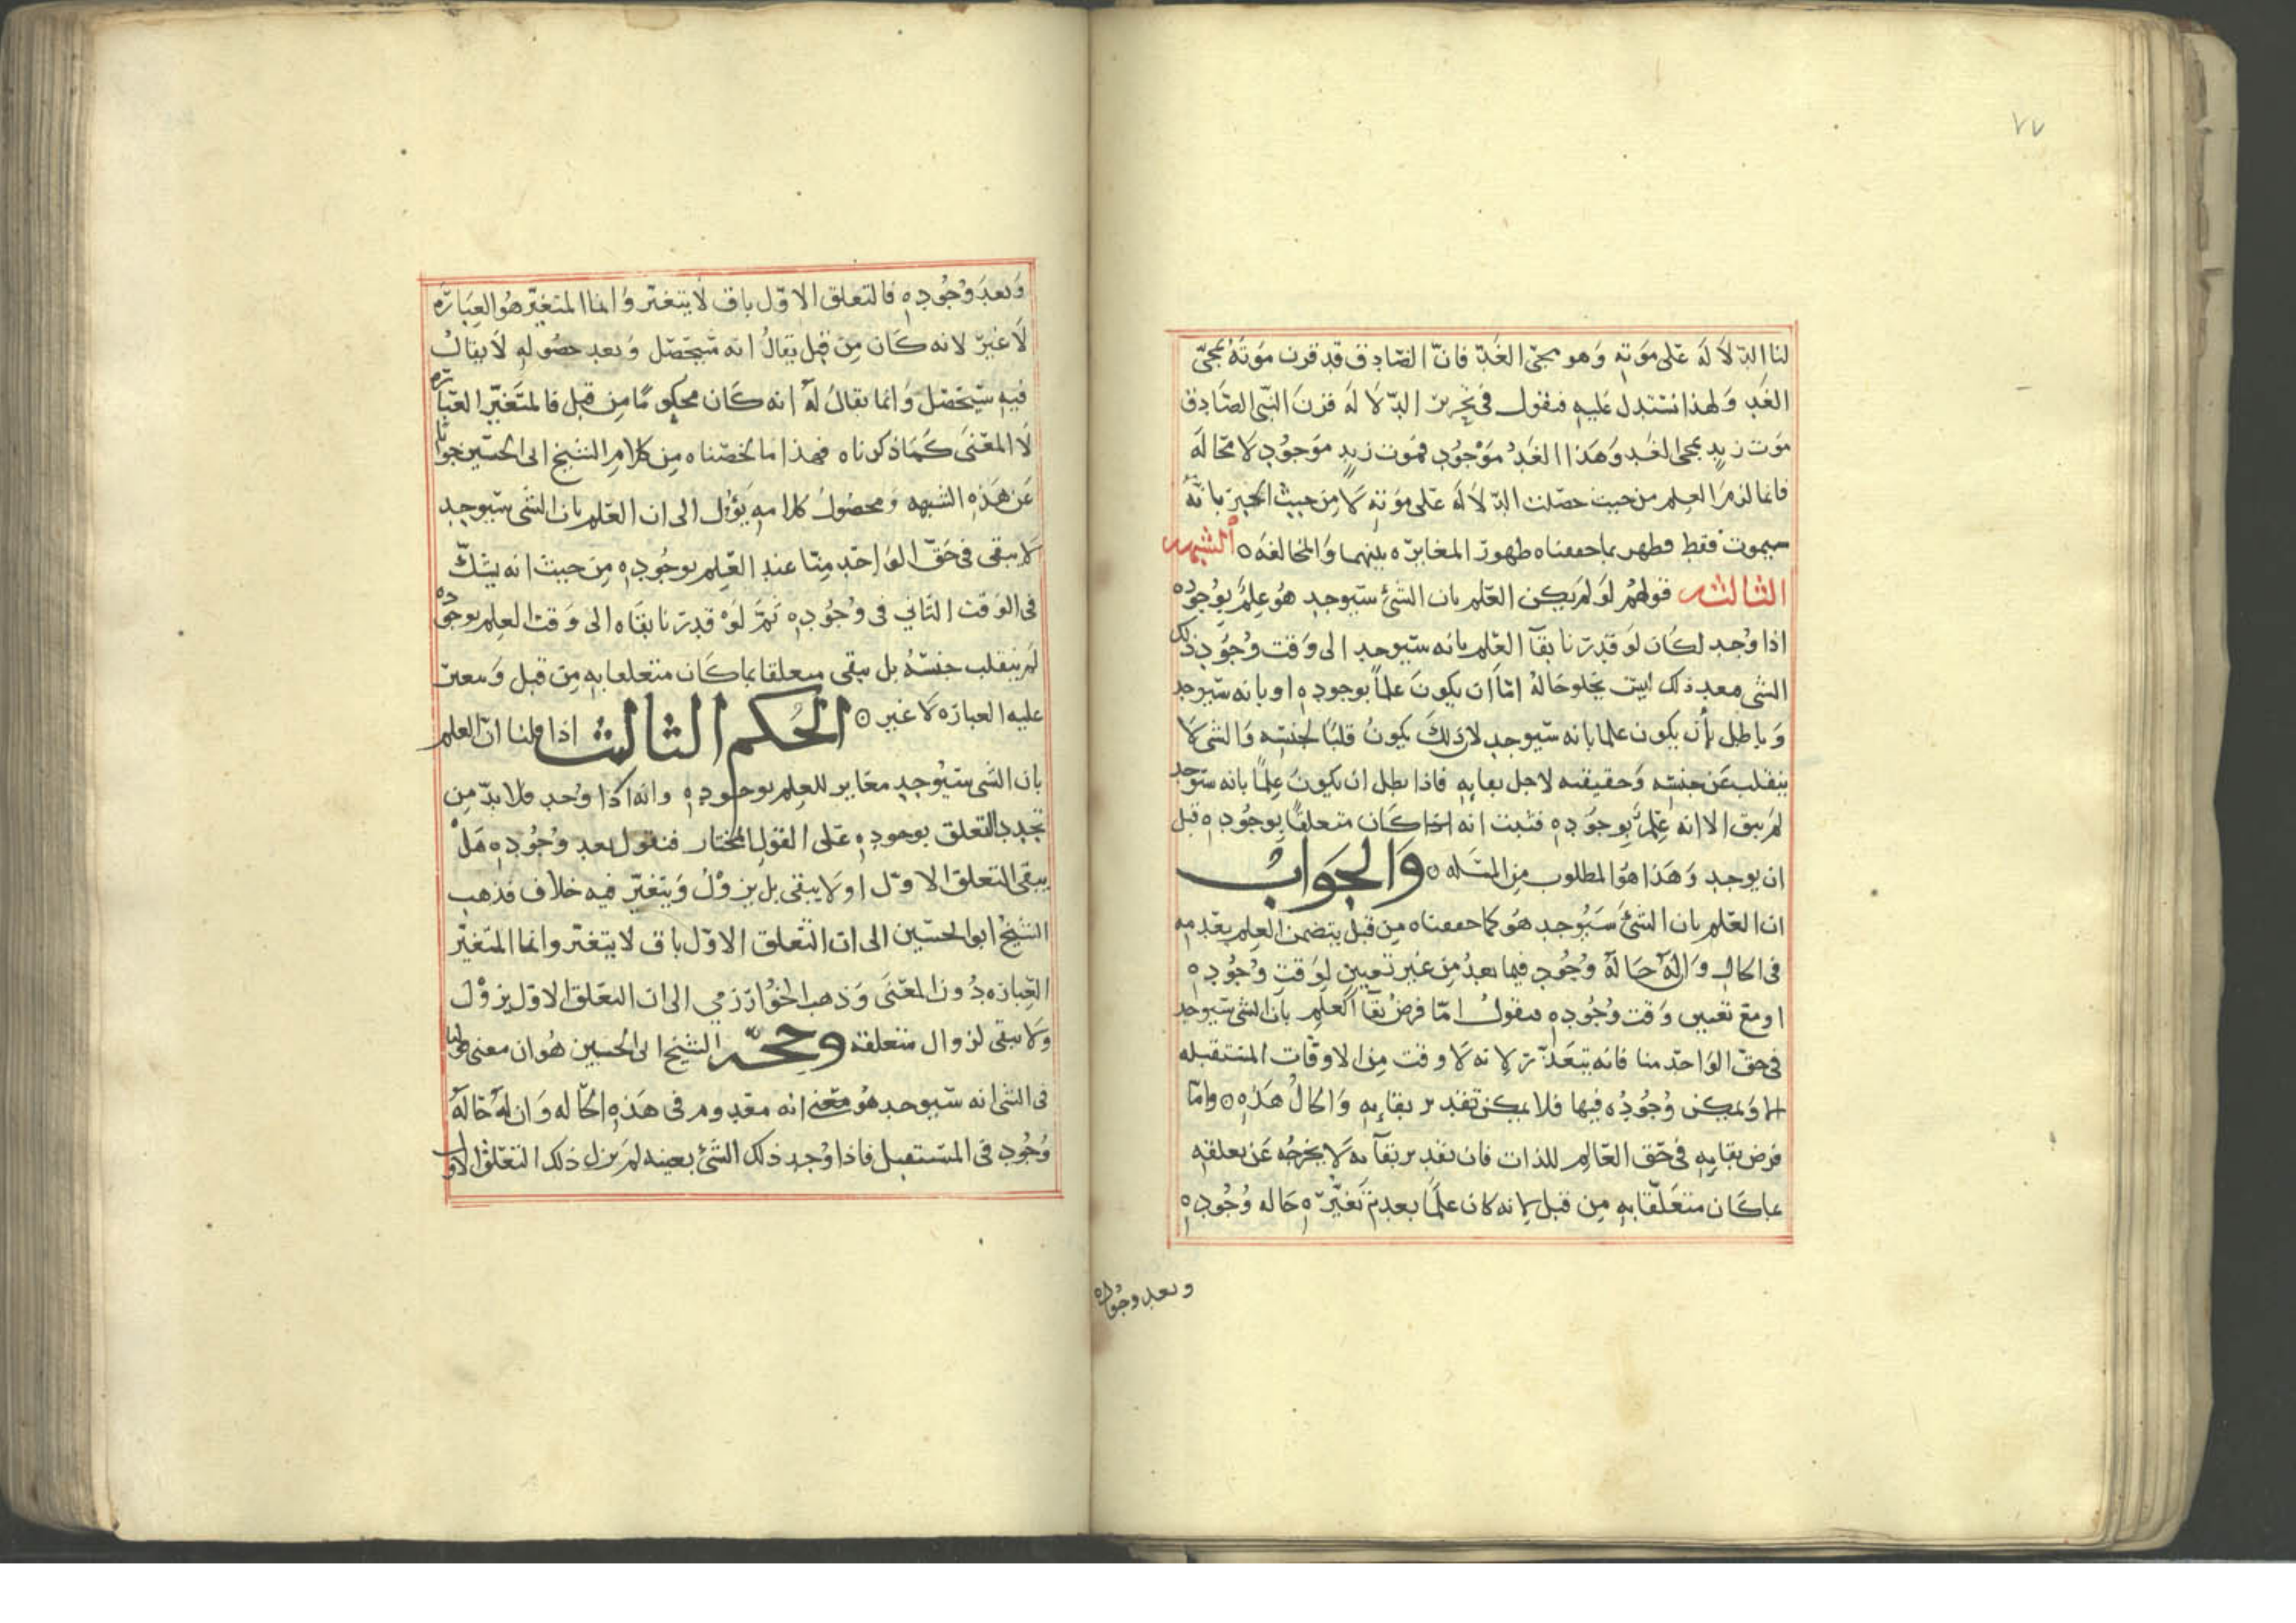 ٧٧
لنا الدّلالَة عَلى مَوتهِ وَهو مجيّ الغَد فانّ الصّادِق قد قرن مَوتَهُ بمجيّ
الغَدِ وَلهذا نستدل عَليهِ فنقول في تحرير الدّلالَة قرَن النّبى الصَّادِق
مَوت زيدٍ بمجى الغَد وَهَذا الغَدُ مَوْجُود فمَوت زيدٍ موَجُود لا محَالَه
فانما لزمَ العِلم من حيث حصَلت الدّلالَة عَلى موَتهِ لا مِن حيث الخبرَ بانّهُ
سيموت فقط فظهر بما حققناه ظهور المغايرَه بيْنهما وَالمخالفَه ○ الشبهه
الثالثه قولهُم لَو لَم يَكن العَلم بان الشئ سَيوجد هُو عِلمٌ بوُجوُده
اذا وُجد لكَان لَو قدّرَنا بقآ العَلم بانه سَيوجد الى وَقت وُجُود ذلك
الشى معد ذلك ليسَ يخلوحَالهُ امّا ان يكونَ علماً بوجودهِ او بانه سَيوجد
وَباطل بأن يكون علما بانه سَيوجد لان ذلكَ يكونُ قلباً لجنسِه وَالشى لا
ينقلب عَن جنسِه وَحقيقته لاجل بقايِهِ فاذا بطل ان يكونُ عِلماً بانه سَيوجد
لَم يبق الا انه عِلمٌ بوجوُدهِ فثبت انه كَان متعلقاً بوجُودهِ قبل
ان يوجد وَهَذا هوَ المطلوب مِن المسَله ○ وَالجَوَابُ
ان العَلم بان الشئَ سَيُوجد هُو كما حققناه مِن قبلُ يتضمن العِلم بعَدمِه
في الحال وَان لَهُ حَالَة وُجُودٍ فيما بعدُ مِن غير تعيينٍ لِوَقتِ وُجُودِهِ
او مَع تعَيين وَقت وُجُودهِ فنقولُ امّا فرضُ بقَا العلِم بان الشى سَيوجد
فى حقّ الوَاحد منا فانه يتعَذّرَ لانه لا وقت مِن الاوقَاتِ المستقبله
الا وَيمكن وُجُودُه فيها فلا يمكن تقدير بقائِهِ وَالحَالُ هَذهِ ○ وامّا
فرض بقايِهِ فى حَق العَالِم للذات فان تقدير بقآئه لاَ يخرجُه عَن تعلقهِ
بما كَان متعَلّقا بهِ مِن قبل لانه كان علماً بعدمَ تَغيّرَه حَاله وُجُودِهِ
وبعد وجُوده
وَبعدَ وُجُودِهِ فالتعلق الاوّل باق لاَ يتغَير وَانما المتغيّر هُو العِبَارَه
لاَ غيرَ لانه كَان مِن قبل يقالُ انه سَيحصَل وَبعد حصُولهِ لاَ يقالُ
فيهِ سَيَحصَل وَانما يقالُ لَهُ انه كَان محكومًا مِن قبل فالمتَغيّر العبَارَه
لاَ المعَنىَ كَمَا ذكرناه فهذا مَا لخصّناه مِن كلامِ الشيخ ابى الحسَين جوابًا
عَن هَذهِ الشبهه وَمحصُولُ كلامهِ يَؤُول الى ان العَلم بان الشَى سَيوجد
لا يبقى فى حَقّ الوَاحَد مِنّا عند العَلم بوجُودِهِ مِن حيث انه يشكّ
فى الوَقت الثَانى فى وُجُودِهِ ثمَّ لَوْ قدرَنا بقَاه الى وَقت العِلم بوجُوده
لَم ينقلب جنسُه بل يبقى متعلقا بما كَان متعلقا بهِ مِن قبل وَتتغير
عليه العبارَه لا غير ○ الحُكم الثالث اذا قلنا انّ العِلم
بان الشَى سَيُوجد مغَاير للعِلم بوجودِهِ وانه اذا وُجد فلا بدّ مِن
تجدد التعلق بوجودهِ عَلى القولِ المُختار فنقول بعد وُجُودِهِ هَلْ
يبقى التعلق الاوّل او لا يبقى بل يزوْلُ وَيتغيّر فيه خلاف فذهب
الشيخُ ابو الحسَين الى ان التعَلق الاوّل باق لا يتغَير وانما المتَغيّر
العِبارَه دُون المعَنَى وَذهب الخُوَارَزمي الى ان التعَلق الاوّل يزوْلَ
وَلا يبقى لزوال متعلقه وحجّه الشيخ ابى الحُسين هُو ان معنى قولنا
فى الشَى انه سَيوجد هُو معَنى انه معَدوم فى هَذهِ الحَاله وَان لَهُ حَالَة
وُجُودٍ فى المسَتقبل فاذا وُجد ذلك الشَئ بعينه لَم يزل ذلك التعَلق الاول